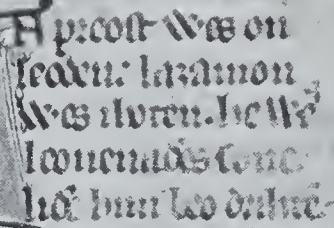 N preost wes on
leoden: laȝamon
wes ihoten. he wes
leouenaðes sone
liðe him beo drihtē